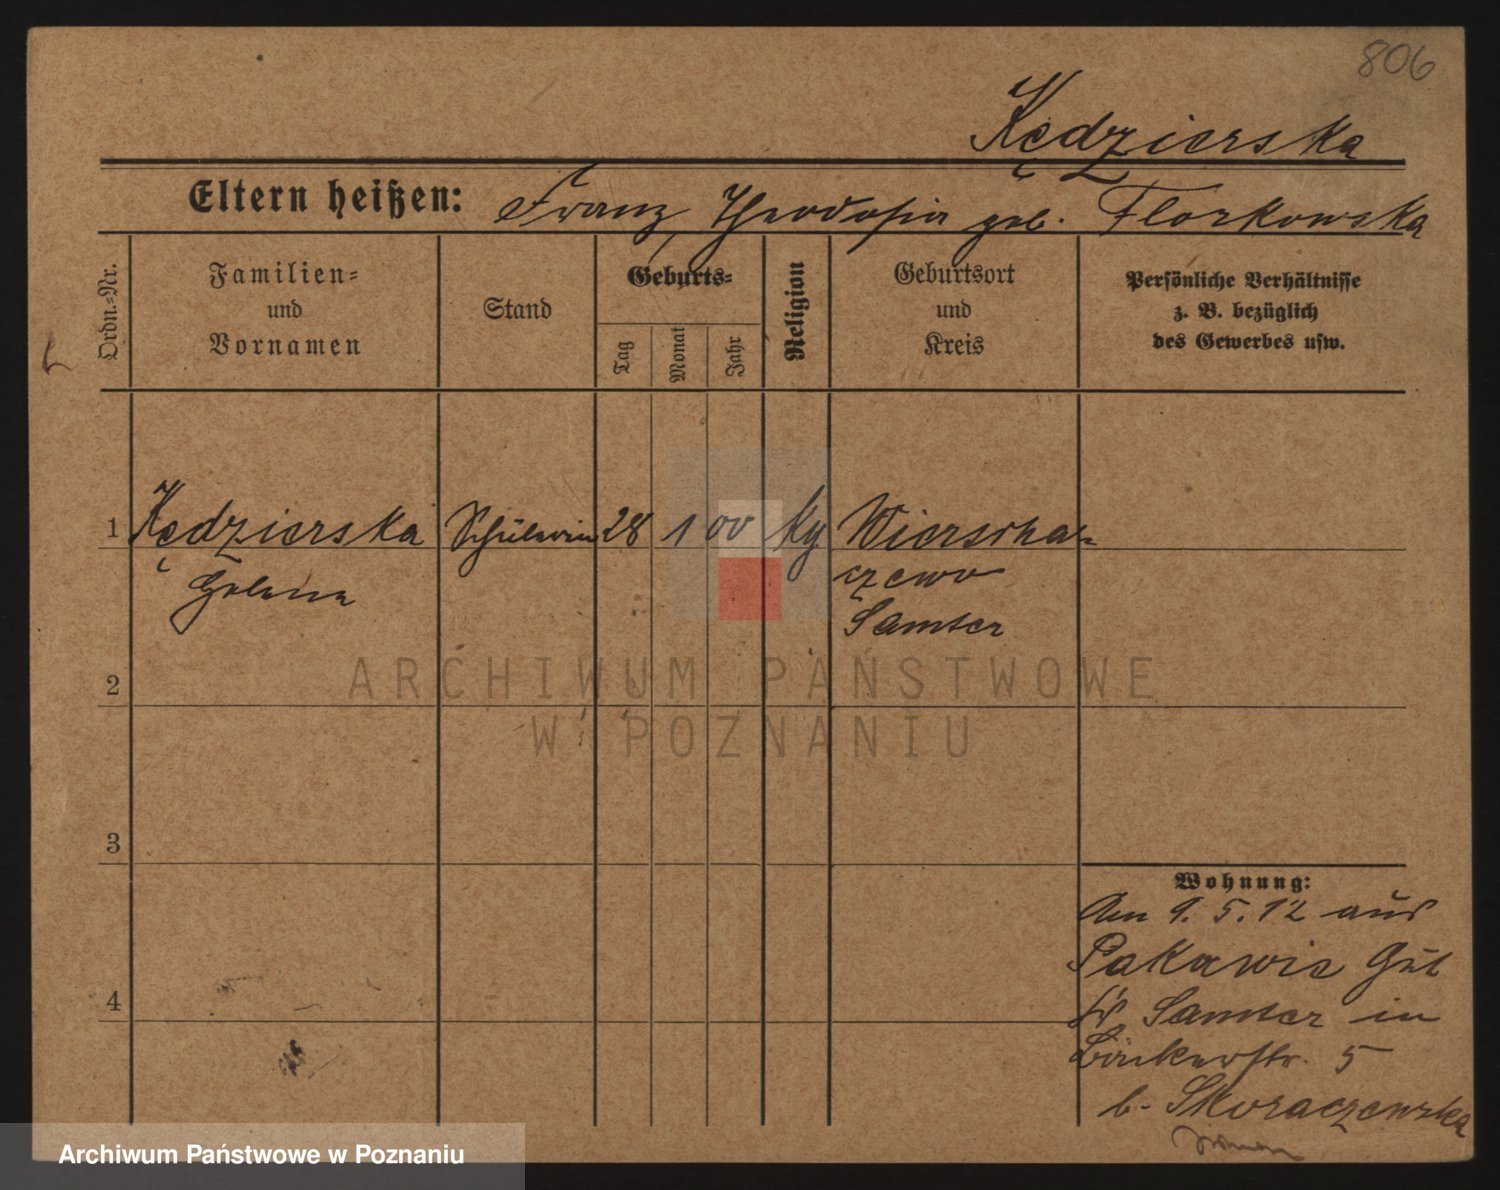 806
Kędzierska
Eltern heißen: Franz, Theodosia geb. Florkowska
Ordn.-Nr.
Familien- und Vornamen
Stand
Geburts-
Tag
Monat
Jahr
Religion
Geburtsort und Kreis
Persönliche Verhältnisse
z. B. bezüglich
des Gewerbes usw.
1 Kędzierska Schülerin 28 1 00 Wierscha-
Helena czewo
Samter
2
ARCHIWUM PAŃSTWOWE
W POZNANIU
3
Wohnung:
Am 9. 5. 12 aus
Pakawie Gut
Kr Samter in
4
Bäckerstr. 5
b. Skoraczewska
Archiwum Państwowe w Poznaniu